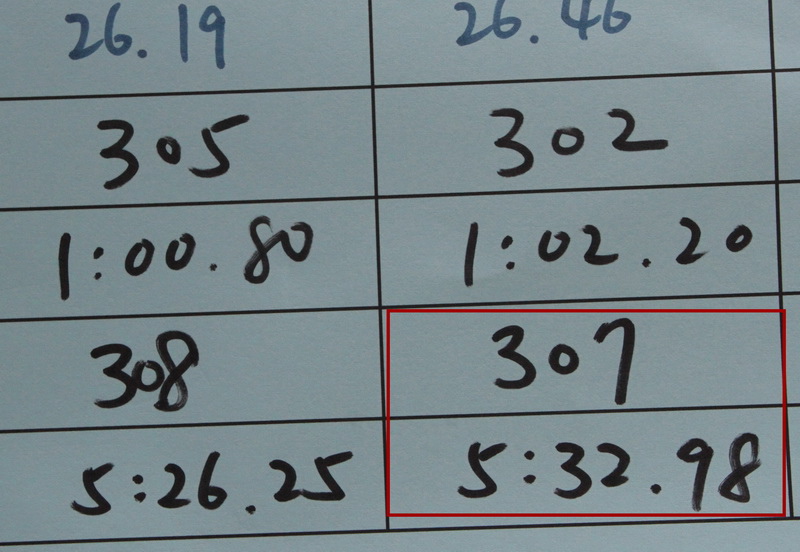 26.19 26.46
305 302
1:00.80 1:02.20
308 307
5:26.25 5:32.98